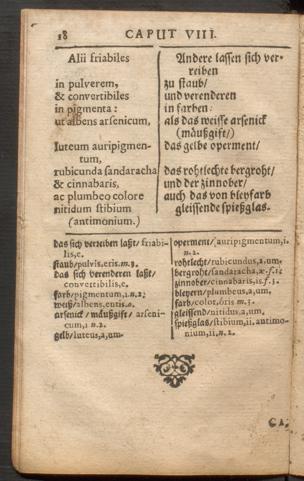 18 CAPUT VIII.
Alii friabiles
in pulverem,
& convertibiles
in pigmenta:
ut albens arsenicum,
luteum auripigmen-
tum,
rubicunda sandaracha
& cinnabaris,
ac plumbeo colore
nitidum stibium
(antimonium.)
Andere lassen sich ver-
reiben
zu staub/
und verenderen
in farben:
als das weisse arsenick
(mäußgift/)
das gelbe operment/
das rohtlechte bergroht/
und der zinnober/
auch das von bleyfarb
gleissende spießglas.
das sich verreiben laßt/ friabi-
lis,e.
staub/pulvis,eris.m.3.
das sich verenderen laßt/
convertibilis,e.
farb/pigmentum,i.n.2;
weiß/albens,entis.o.
arsenick / mäußgift/ arseni-
cum,i n.2.
gelb/luteus,a,um.
operment/auripigmentum,i.
n.2.
rohtlecht/rubicundus,a,um.
bergroht/sandaracha,æ.f.1.
zinnober/cinnabaris,is.f.3.
bleyern/plumbeus,a,um.
farb/color,óris m.3.
gleissend/nitidus,a,um.
spießglas/stibium,ii.antimo-
nium,ii.n.2.